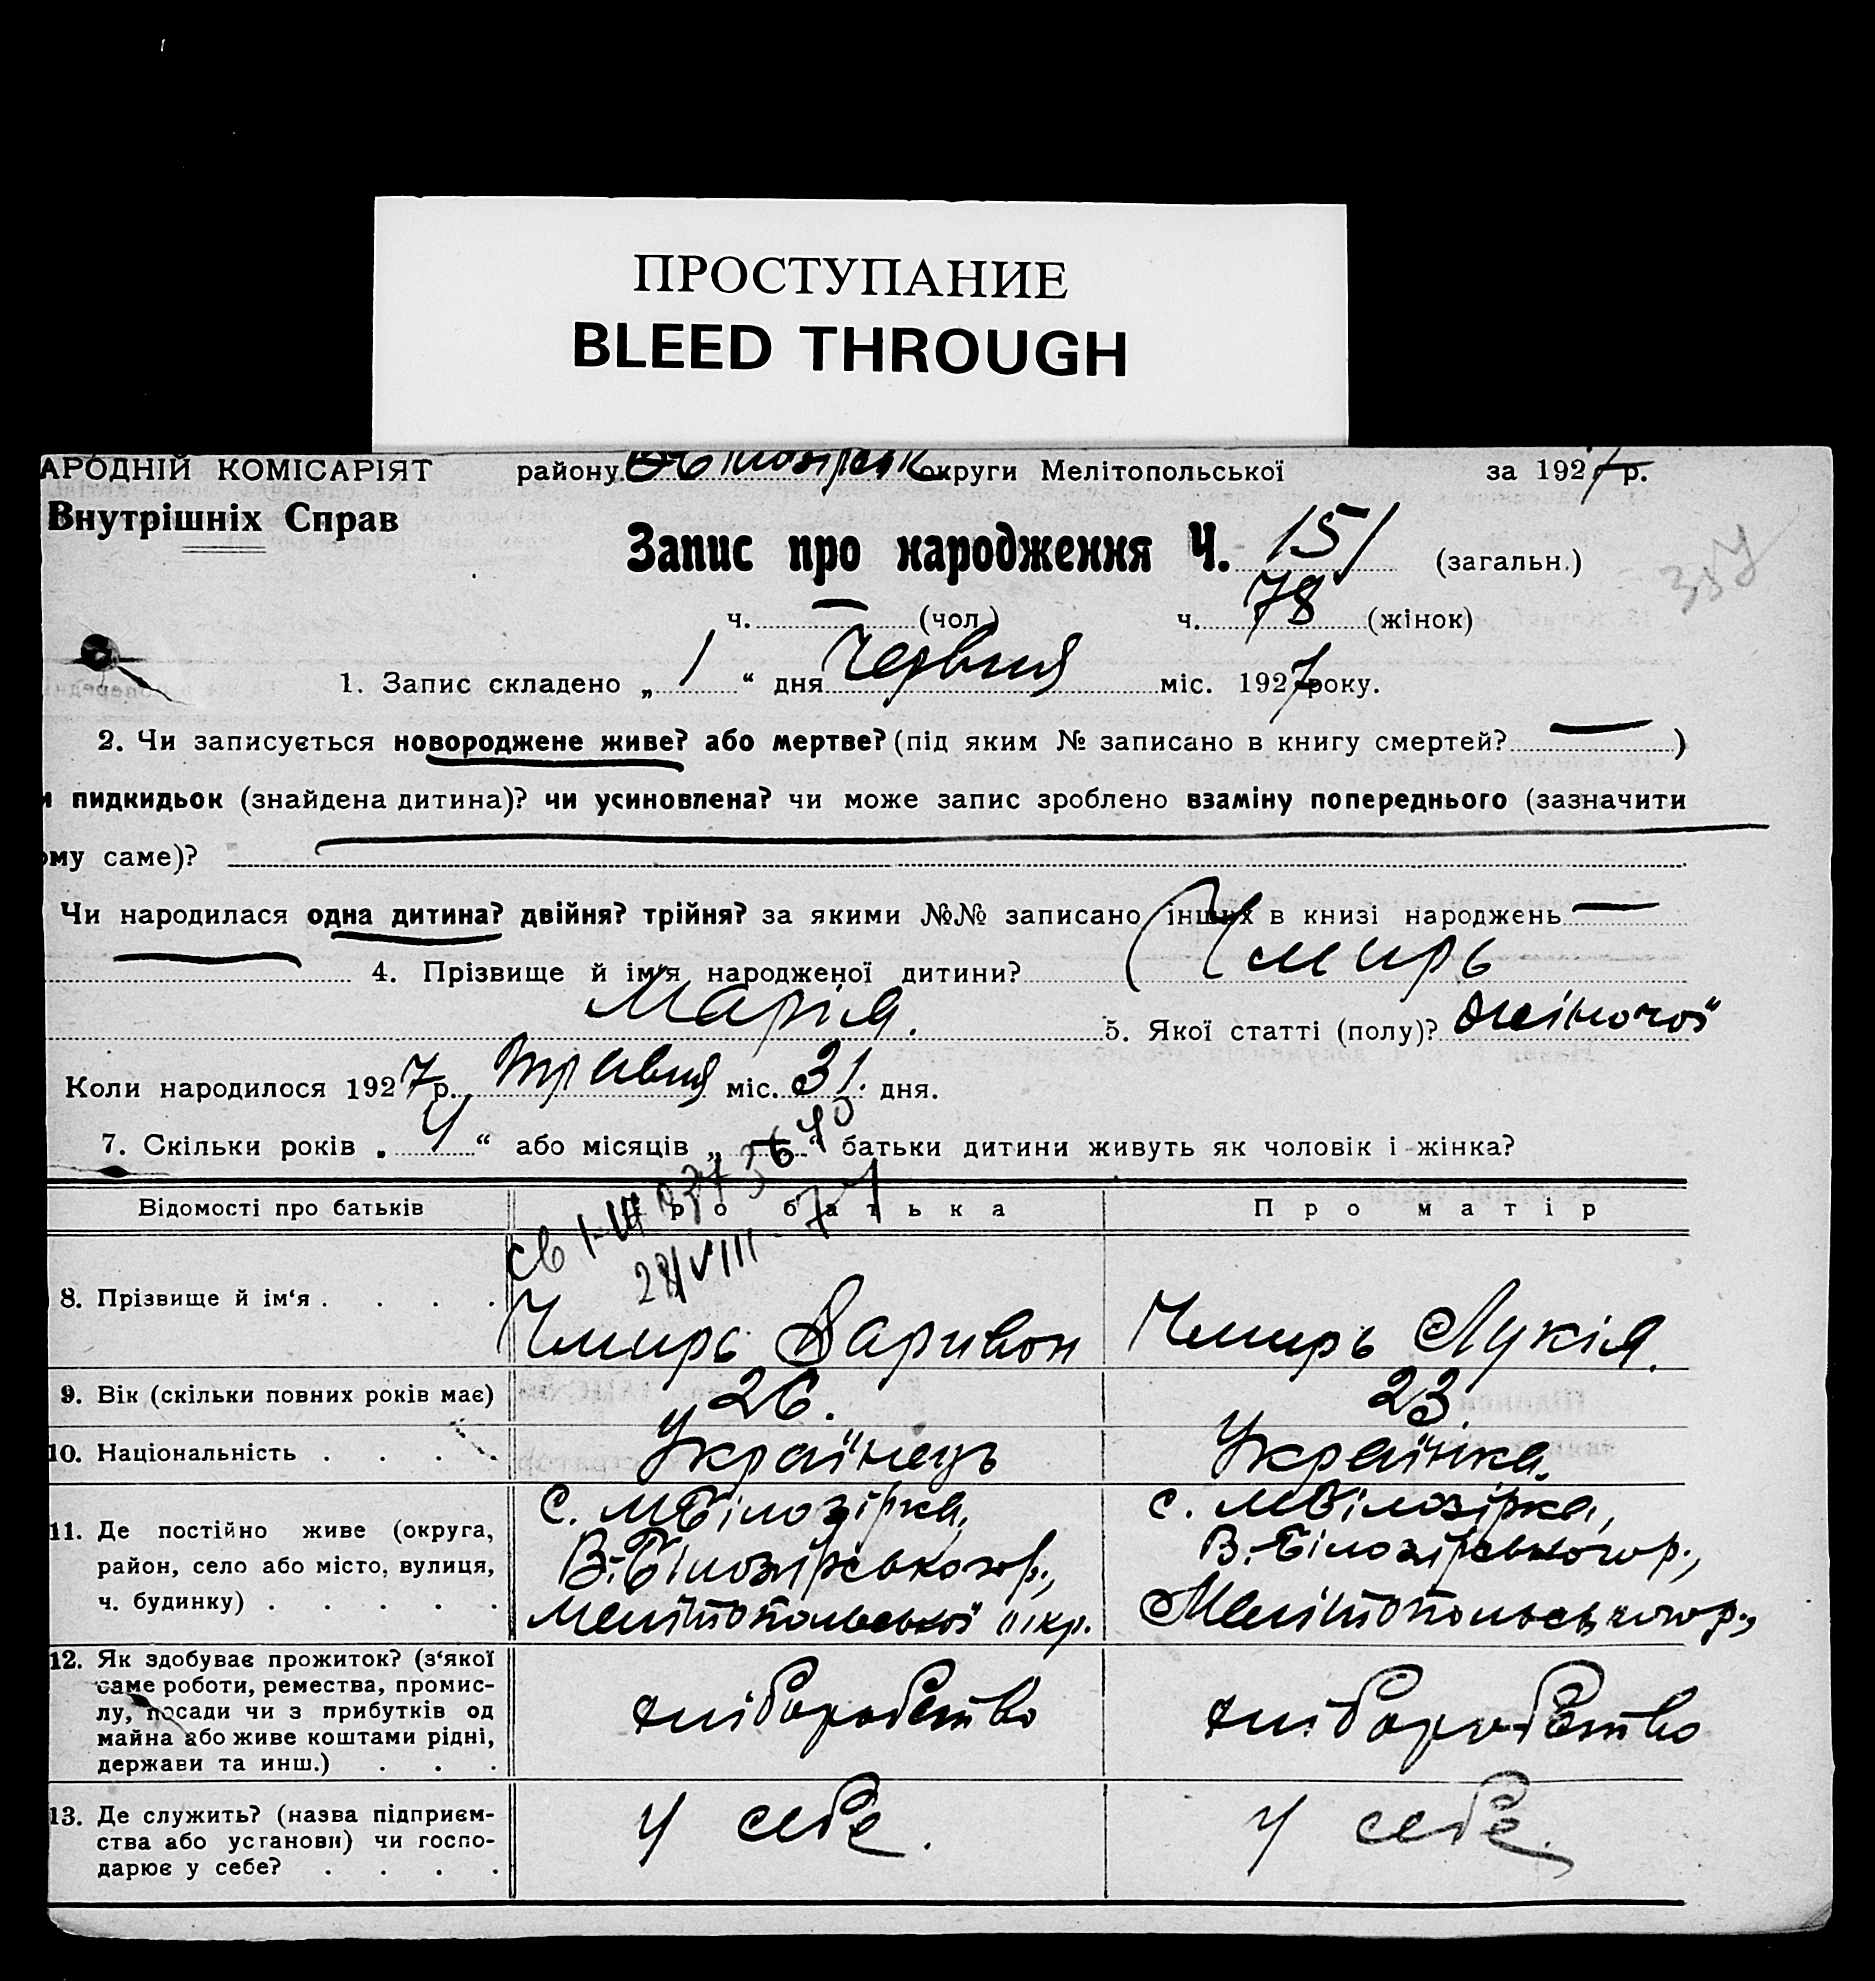 ПРОСТУПАНИЕ
BLEED THROUGH
АРОДНІЙ КОМІСАРІЯТ району округи Мелітопольської за 1927 р.
Внутрішніх Справ
Запис про народження Ч. 151 (загальн.)
357
ч. — (чол.) ч. 78 (жінок)
1. Запис складено „ 1 “ дня Червня міс. 1927 року.
2. Чи записується новороджене живе? або мертве? (під яким № записано в книгу смертей? — )
и пидкидьок (знайдена дитина)? чи усиновлена? чи може запис зроблено взаміну попереднього (зазначити
ому саме)?
Чи народилася одна дитина? двійня? трійня? за якими №№ записано інших в книзі народжень —
— 4. Прізвище й ім'я народженої дитини? Чмирь
Марія. 5. Якої статті (полу)? жіночої
Коли народилося 1927 р. травня міс. 31. дня.
7. Скільки років „ 4 “ або місяців „ “ батьки дитини живуть як чоловік і жінка?
Відомості про батьків Про батька Про матір
св
28/VIII
8. Прізвище й ім‘я . . . . Чмирь Ларивон Чмирь Лукія.
9. Вік (скільки повних років має) 26. 23.
10. Національність . . . . Українець Українка.
11. Де постійно живе (округа, с. МБілозірка, с. МБілозірка,
район, село або місто, вулиця, В.-Білозірського р., В.-Білозірського р.,
ч. будинку) . . . . . Мелітопольської окр. Мелітопольського р.,
12. Як здобуває прожиток? (з‘якої
саме роботи, ремества, промис-
лу, посади чи з прибутків од хліборобство хліборобство
майна або живе коштами рідні,
держави та инш.) . . .
13. Де служить? (назва підприєм-
ства або установи) чи госпо- У себе. У себе.
дарює у себе? . . . .